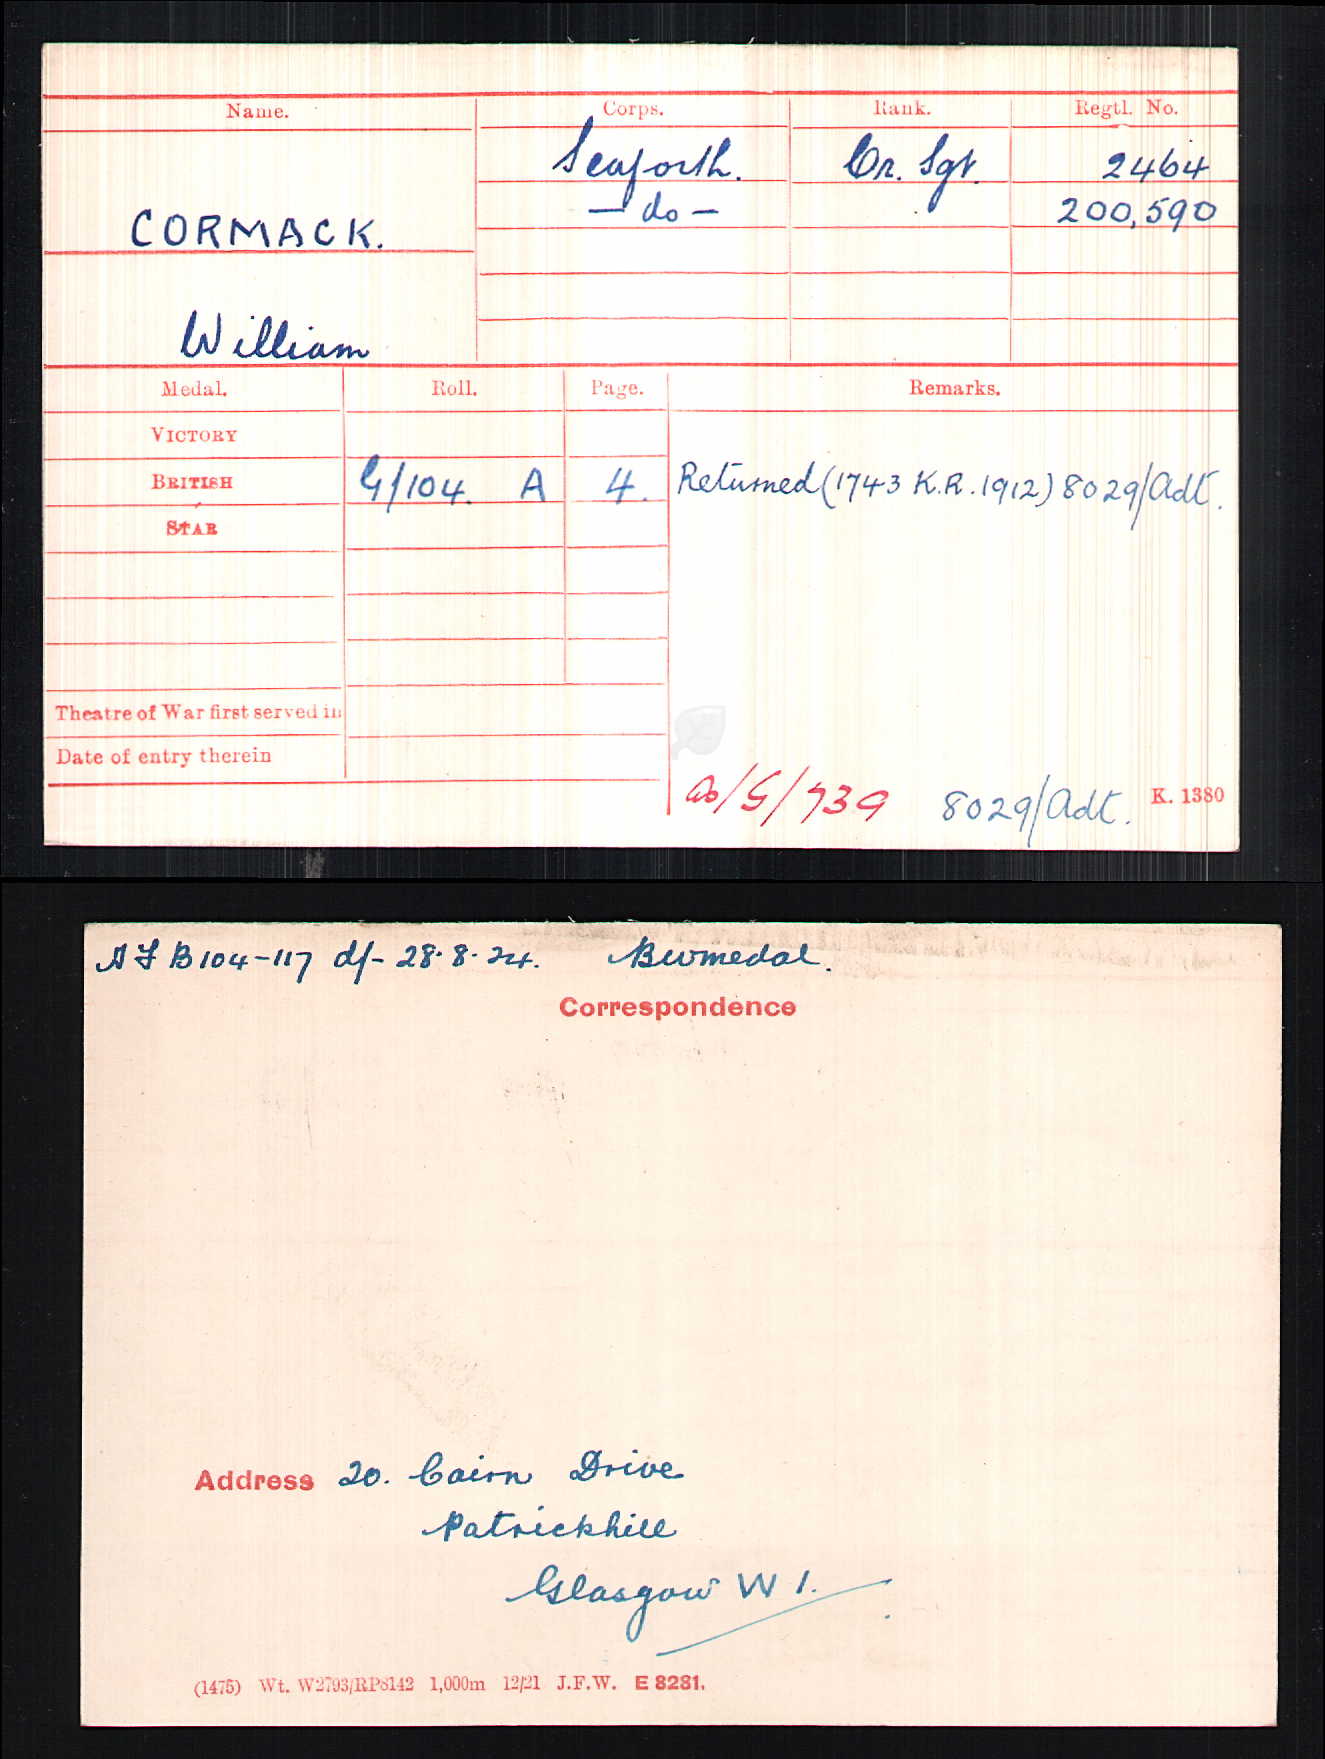 Name. Corps. Rank. Regtl. No.
Seaforth. Cr. Sgt. 2464
CORMACK. — do — 200,590
William
Medal. Roll. Page. Remarks.
VICTORY
BRITISH G/104. A 4. Returned (1743 K.R. 1912) 8029/Adt.
STAR
Theatre of War first served in
Date of entry therein
G/739 8029/Adt. K. 1380
A F B 104-117 df- 28.8.24. Bwmedal.
Correspondence
Address 20. Cairn Drive
Patrickhill
Glasgow W 1.
(1475) Wt. W2793/RP8142 1,000m 12/21 J.F.W. E 8281.